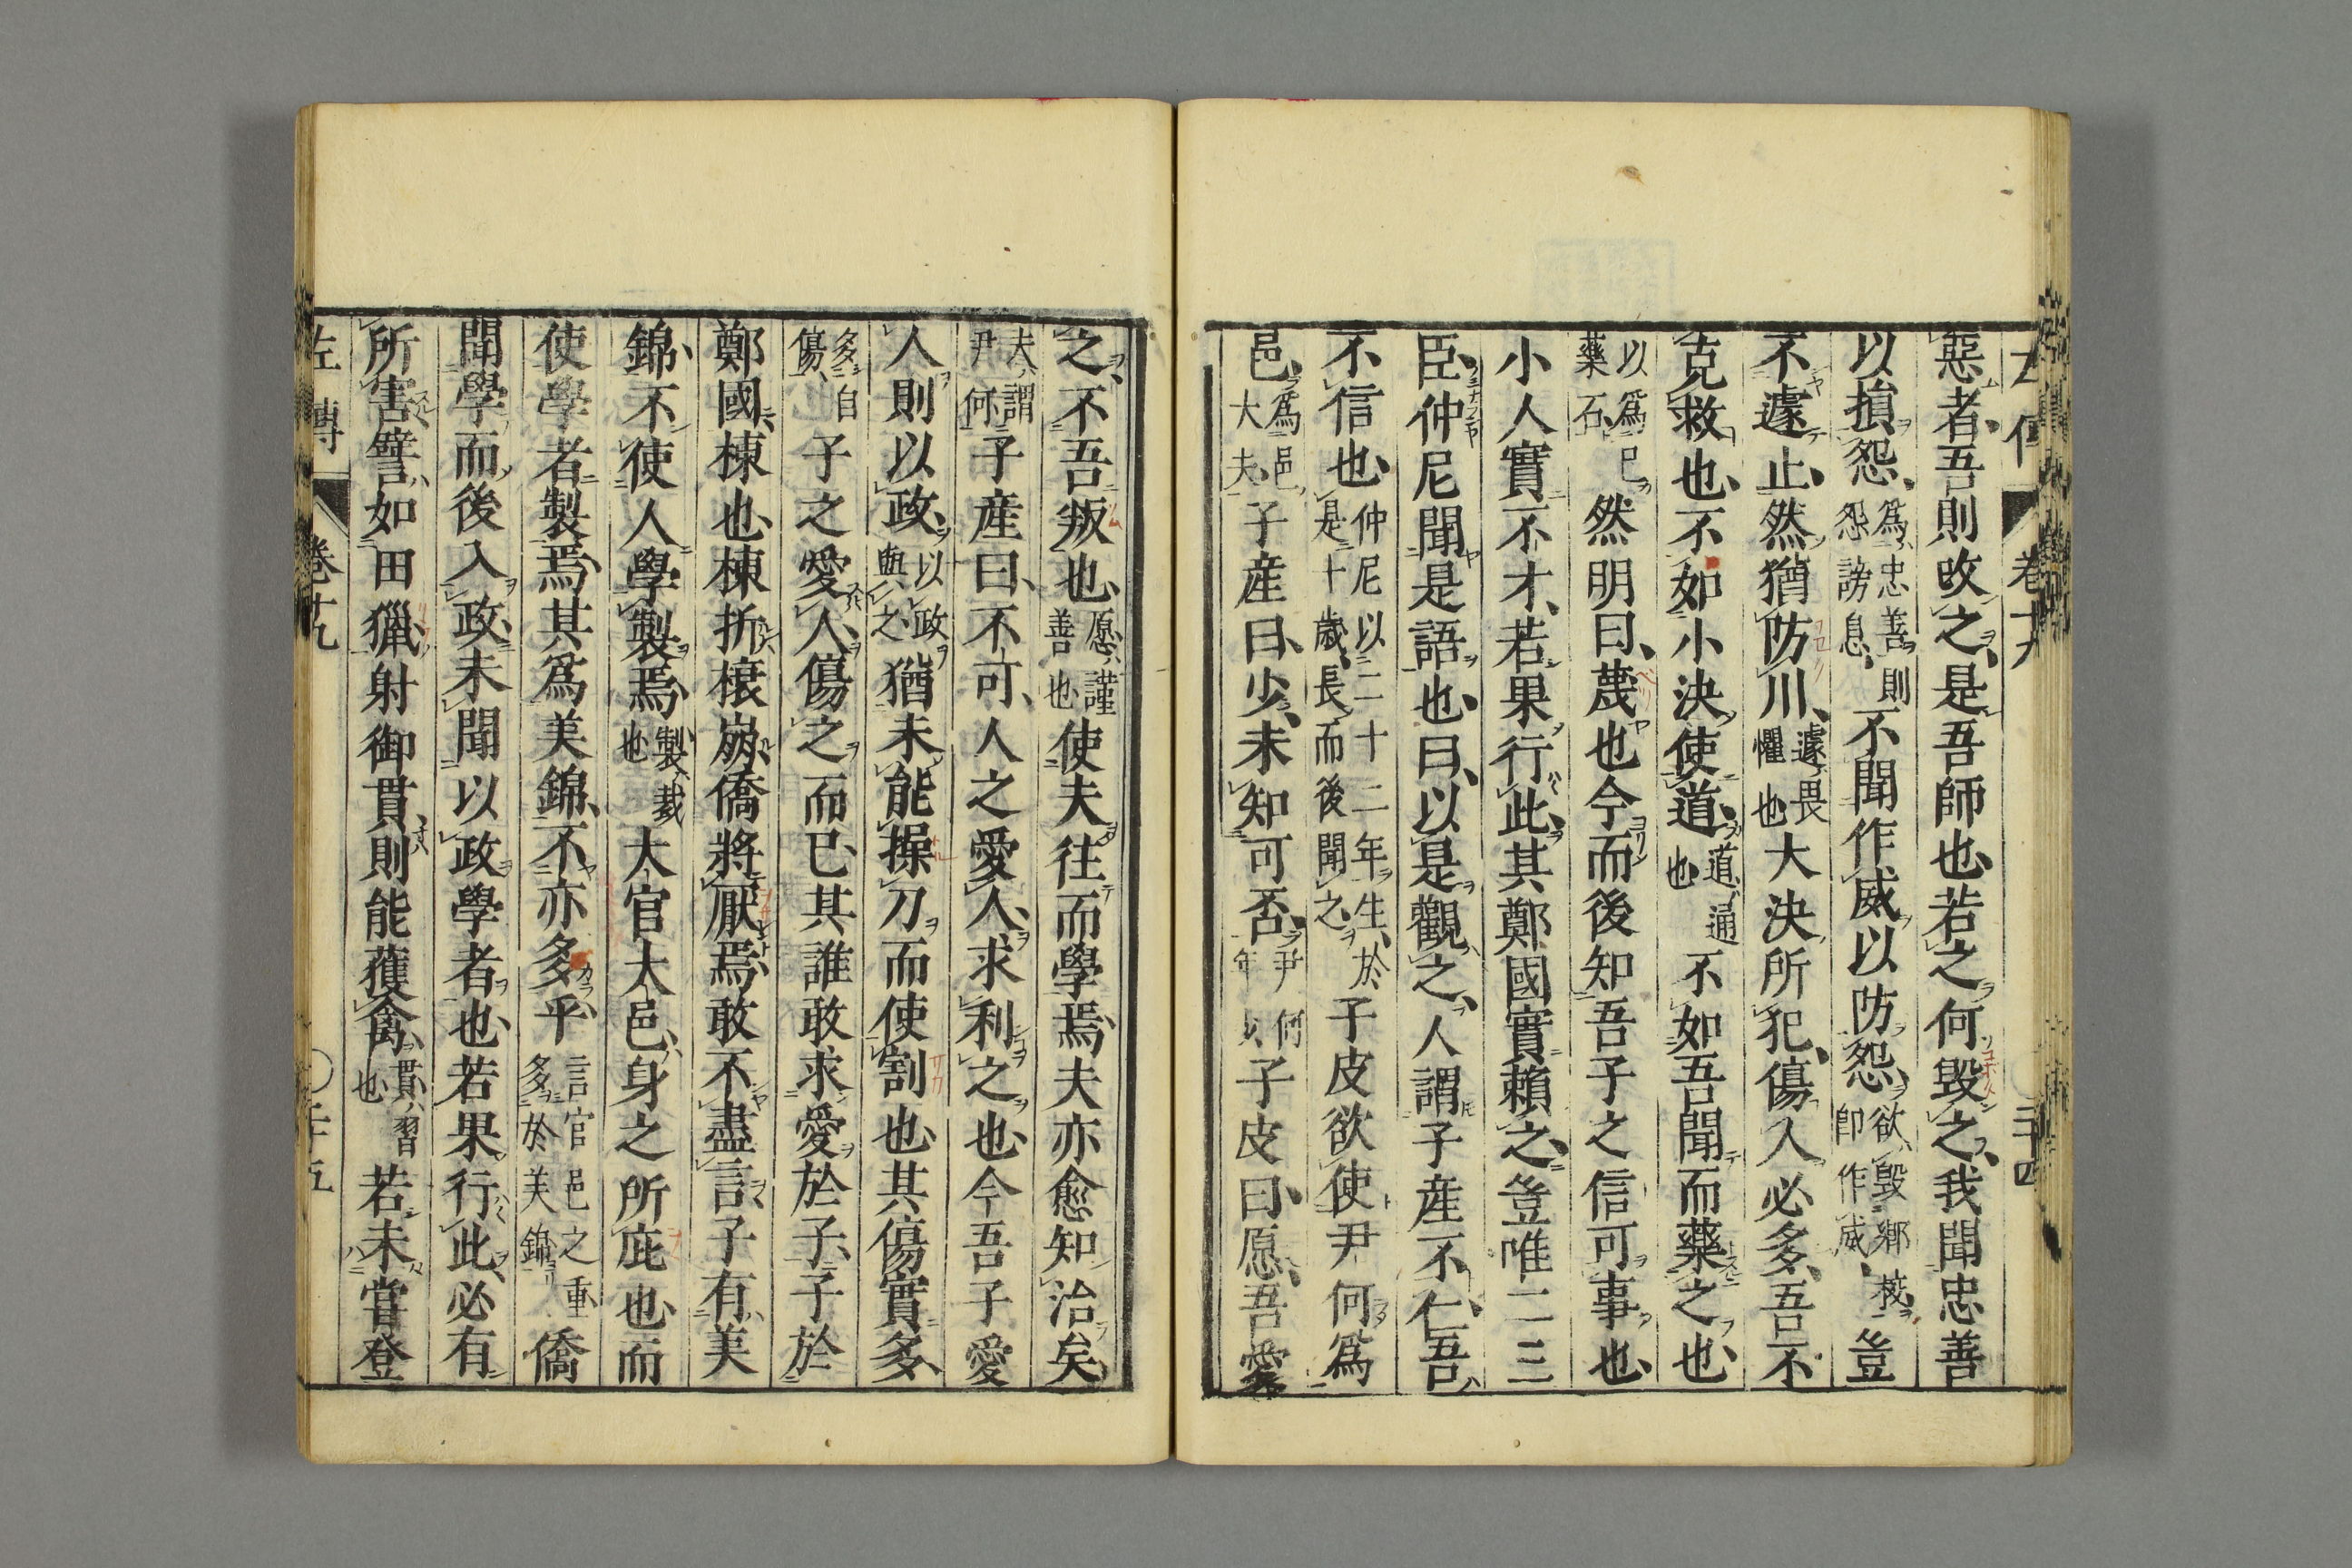 惡者吾則攺之是吾師也若之何毀之我聞忠善
以損怨爲忠善則怨謗息不聞作威以防怨欲毀鄉校即作威豈
不遽止然猶防川遽畏懼也大決所犯傷人必多吾不
克救也不如小決使道道通也不如吾聞而藥之也
以爲己藥石然明曰蔑也今而後知吾子之信可事也
小人實不才若果行此其鄭國實賴之豈唯二三
臣仲尼聞是語也曰以是觀之人謂子産不仁吾
不信也仲尼以二十二年生於是十歳長而後聞之子皮欲使尹何爲
邑爲邑大夫子産曰少未知可否尹何年少子皮曰愿吾愛
之不吾叛也愿謹善也使夫往而學焉夫亦愈知治矣
夫謂尹何子産曰不可人之愛人求利之也今吾子愛
人則以政以政與之猶未能操刀而使割也其傷實多
多自傷也子之愛人傷之而已其誰敢求愛於子子於
鄭國棟也棟折榱崩僑將厭焉敢不盡言子有美
錦不使人學製焉製裁也大官大邑身之所庇也而
使學者製焉其爲美錦不亦多乎言官邑之重多於美錦僑
聞學而後入政未聞以政學者也若果行此必有
所害譬如田獵射御貫則能獲禽貫習也若未嘗登
左傳 卷十九 二十五